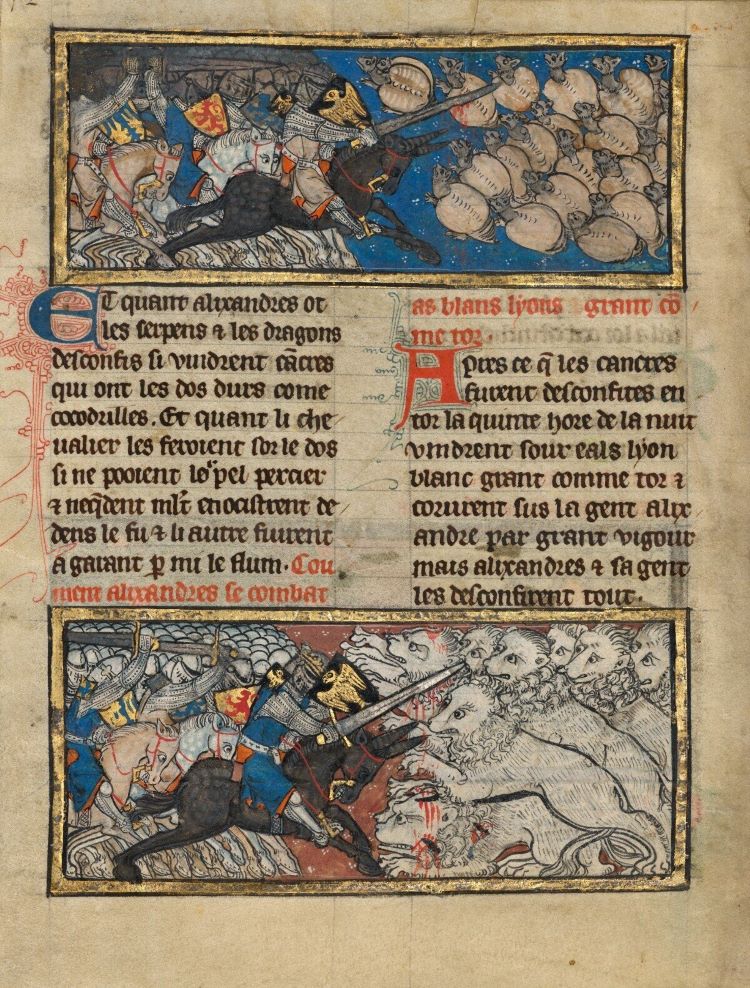 Et quant alixandres ot
les serpens ⁊ les dragons
desconfis si vindrent cācres
qui ont les dos durs come
cocodrilles. Et quant li che
ualier les feroient sor le dos
si ne pooient lo᷑ pel percier
⁊ neq̄dent ml̄t en ocistrent de
dens le fu ⁊ li autre fuirent
a garant ꝑ mi le flum. Cou
ment alixandres se combat
as blans lyons grant cō
me tor.
Apres ce q̄ les cancres
furent desconfites en
tor la quinte hore de la nuit
vindrent sour eals lyon
blanc grant comme tor ⁊
corurent sus la gent alix
andre par grant vigour
mais alixandres ⁊ sa gent
les desconfirent tout.